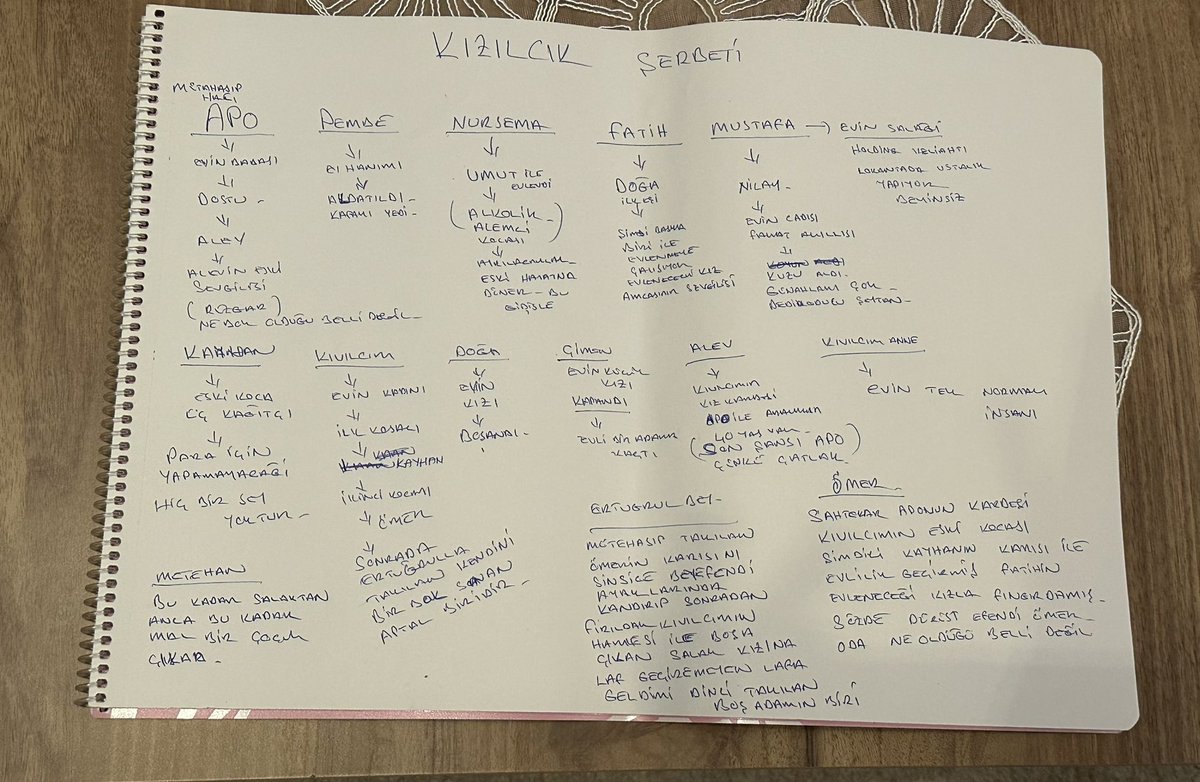 KIZILCIK ŞERBETİ
MÜTAHASIP
APO
EVİN BABASI
DOSTU
ALEV
ALEVİN ESKİ
SEVGİLİSİ
(RÜZGAR)
NE BOK OLDUĞU BELLİ DEĞİL
PEMBE
EV HANIMI
ALDATILDI
KAFAYI YEDİ
NURSEMA
UMUT İLE
EVLENDİ
(ALKOLİK
ALEMCİ
KOCASI)
ESKİ HAYATINA
DÖNER - BU
GİDİŞLE
FATİH
DOĞA
İLK EŞİ
ŞİMDİ BAŞKA
BİRİ İLE
EVLENMEYE
ÇALIŞIYOR
EVLENECEĞİ KIZ
AMCASININ SEVGİLİSİ
MUSTAFA → EVİN SALAĞI
HOLDİNG VELİAHTI
LOKANTADA USTALIK
YAPIYOR
BEYİNSİZ
NİLAY
EVİN CADISI
FAKAT AKILLISI
KUZU ALDI.
GÜNAHLARI ÇOK
KAYHAN
ESKİ KOCA
ÜÇ KAĞITÇI
PARA İÇİN
YAPAMAYACAĞI
HİÇ BİR ŞEY
YOKTUR
KIVILCIM
EVİN KADINI
İLK KOCASI
KAYHAN
İKİNCİ KOCASI
ÖMER
SONRADA
ERTUĞRULLA
TAKILAN KENDİNİ
BİR BOK SANAN
APTAL BİRİDİR
DOĞA
EVİN
KIZI
BOŞANDI
ÇİMEN
EVİN KÜÇÜK
KIZI
KAPANDI
EVLİ BİR ADAMA
KAÇTI
ALEV
KIVILCIMIN
KIZ KARDEŞİ
APO İLE
40 YAŞ VAR
(SON ŞANSI APO)
ÇÜNKÜ ÇATLAK
KIVILCIM ANNE
EVİN TEK NORMAL
İNSANI
METEHAN
BU KADAR SALAKTAN
ANCA BU KADAR
MAL BİR ÇOCUK
ÇIKAR
ERTUĞRUL BEY
MÜTEHASIP TAKILAN
ÖMERİN KARISINI
SİNSİCE BEYEFENDİ
AYAKLARINDA
KANDIRIP SONRADAN
FIRILDAK KIVILCIMIN
HAMLESİ İLE BOŞA
ÇIKAN SALAK KIZINA
LAF GEÇİREMEYEN LAFA
GELDİMİ DİNCİ TAKILAN
BOŞ ADAMIN BİRİ
ÖMER
SAHTEKAR APONUN KARDEŞİ
KIVILCIMIN ESKİ KOCASI
ŞİMDİKİ KAYHANIN KARISI İLE
EVLİLİK GEÇİRMİŞ FATİHİN
EVLENECEĞİ KIZLA FINGIRDAMIŞ
SÖZDE DÜRÜST EFENDİ ÖMER
ODA NE OLDUĞU BELLİ DEĞİL